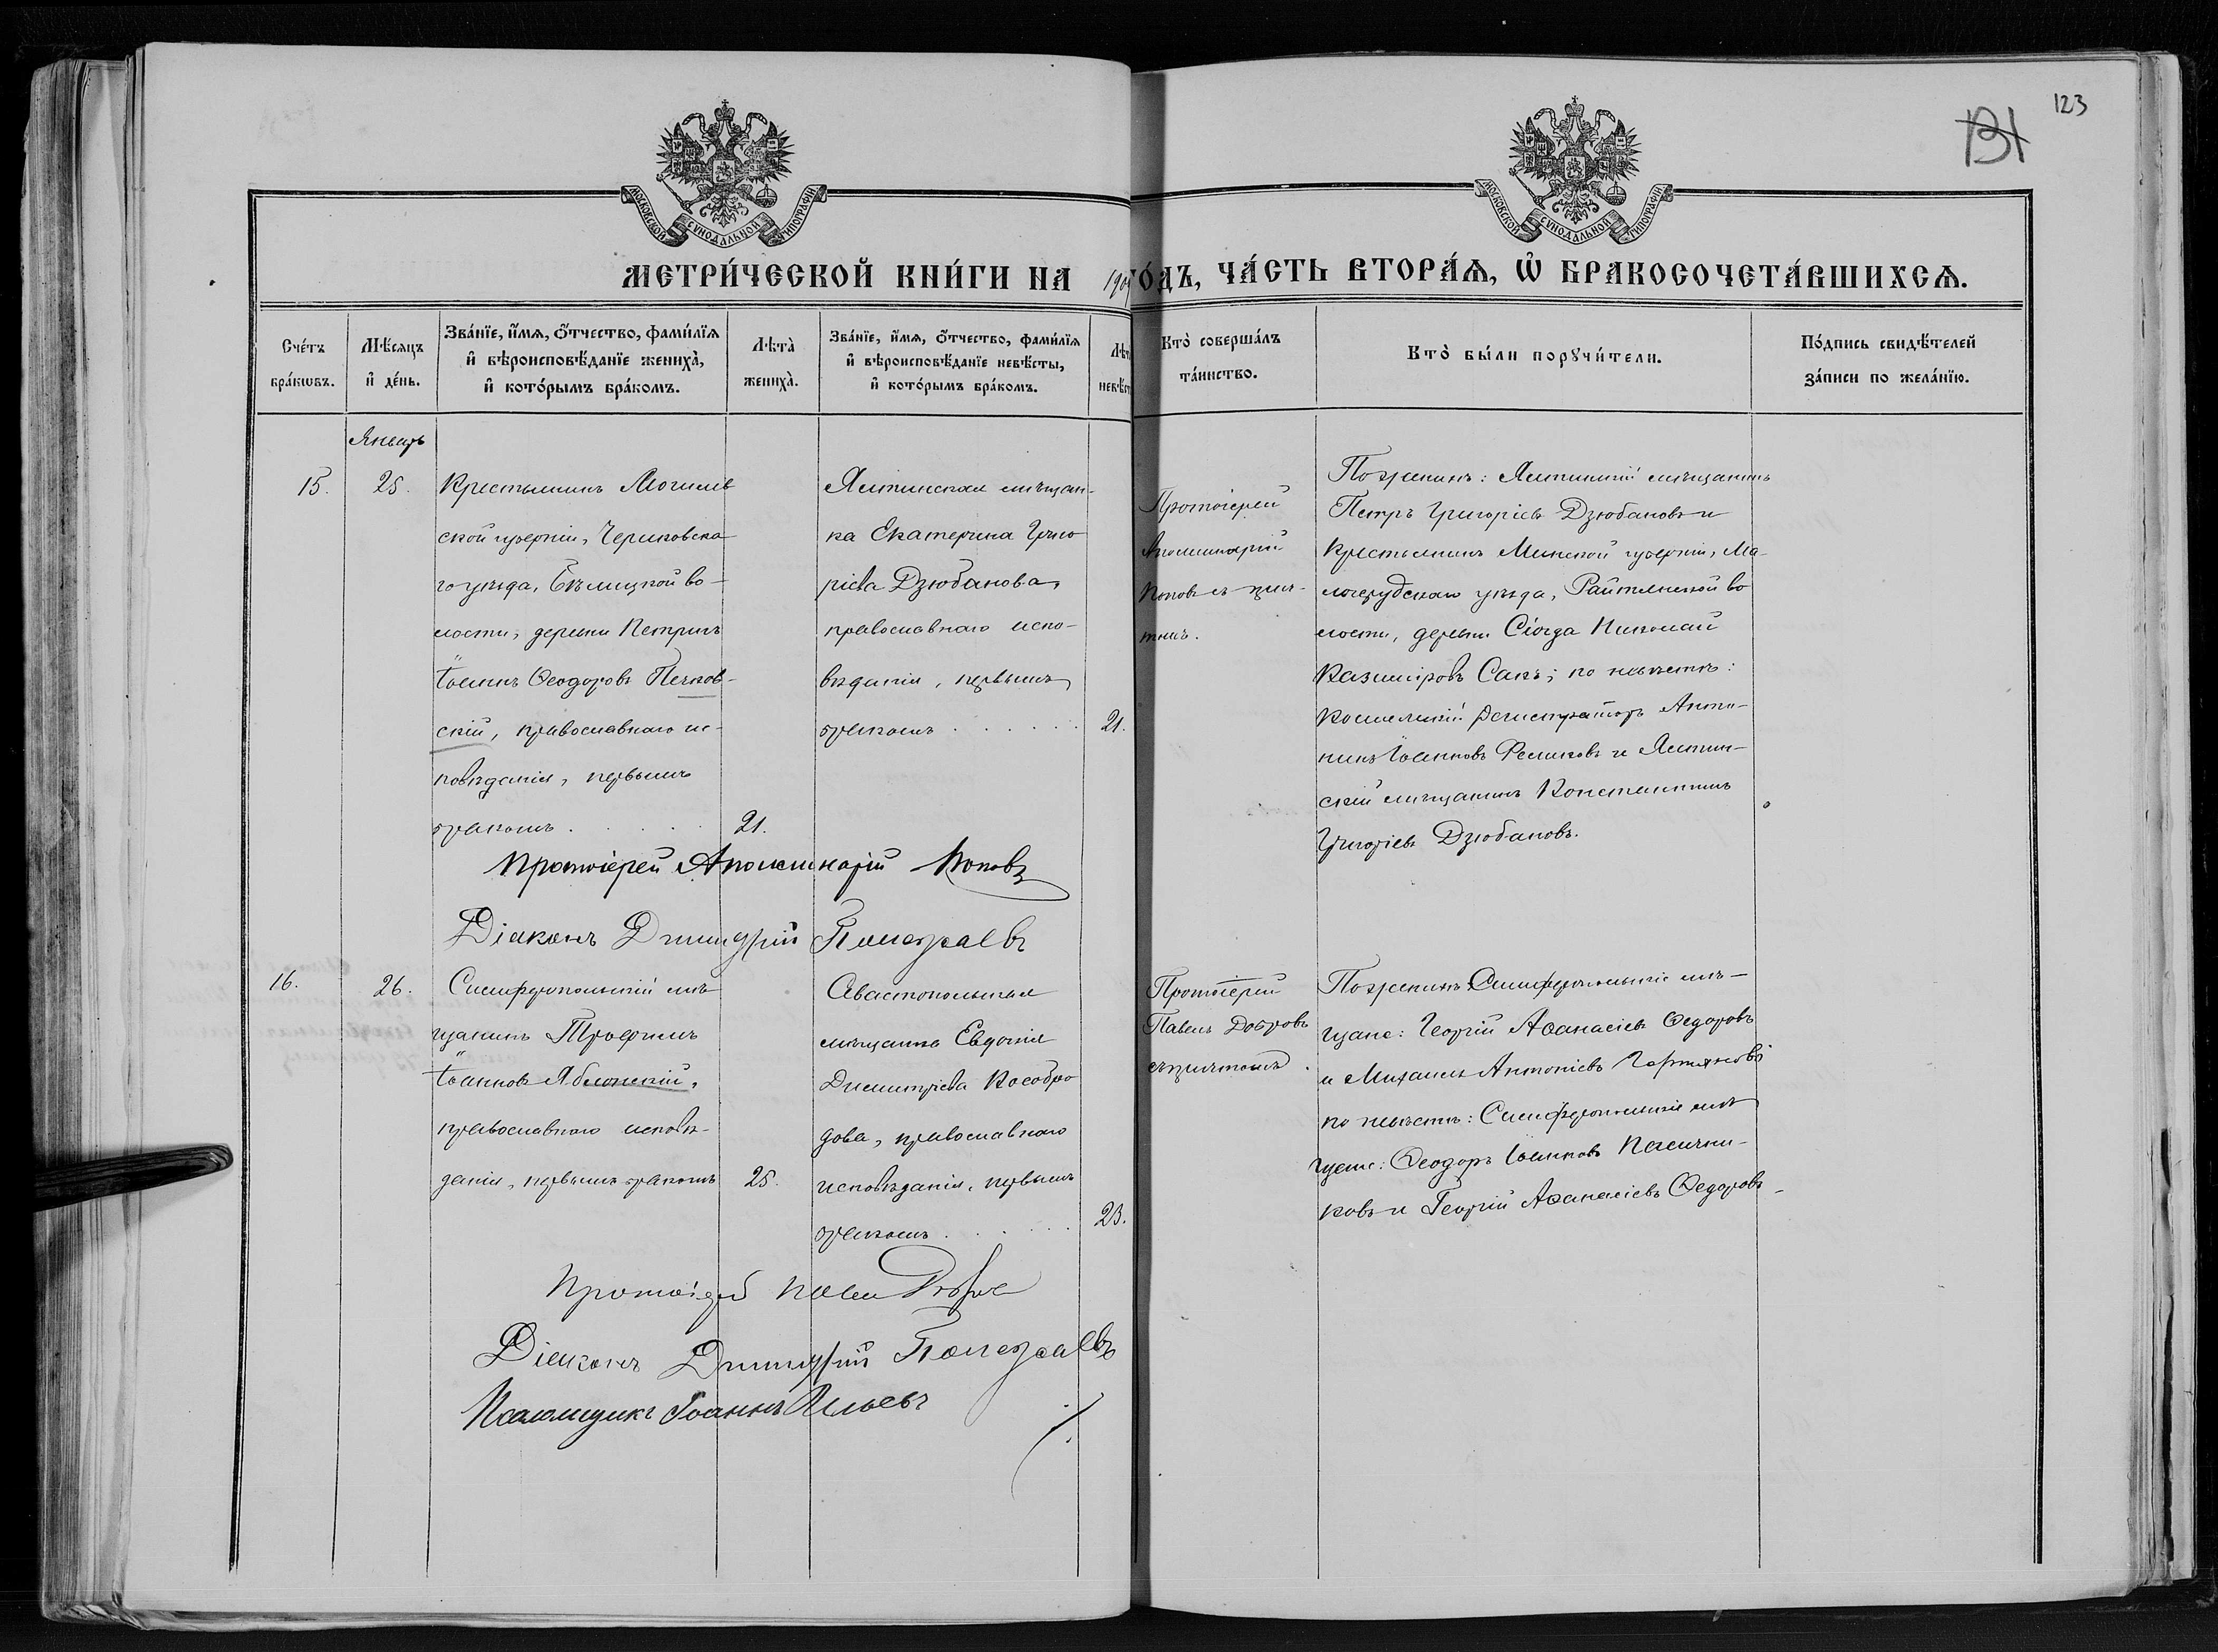 123
131
МОСКОВСКОЙ СѴНОДАЛЬНОЙ ТИПОГРАФІИ
МОСКОВСКОЙ СѴНОДАЛЬНОЙ ТИПОГРАФІИ
МЕТРИ́ЧЕСКОЙ КНИ́ГИ НА 190
ГО́ДЪ, ЧА́СТЬ ВТОРА́Ѧ, Ѽ БРАКОСОЧЕТА́ВШИХСѦ.
Сче́тъ
бра́кѡвъ.
Мѣ́сяцъ
и҆ де́нь.
Зва́нїе, и҆́мѧ, ѻ҆́тчество, фами́лїѧ
и҆ вѣроисповѣ́данїе жениха̀,
и҆ кото́рымъ бра́комъ.
Лѣта̀
жениха̀.
Зва́нїе, и҆́мѧ, ѻ҆́тчество, фами́лїѧ
и҆ вѣроисповѣ́данїе невѣ́сты,
и҆ кото́рымъ бра́комъ.
Лѣт
невѣст
Кто̀ соверша́лъ
та́инство.
Кто̀ бы́ли порꙋчи́тели.
По́дпись свидѣ́телей
за́писи по жела́нїю.
Январь
15.
25.
Крестьянинъ Могилев
ской губерніи, Чериковска
го уѣзда, Бѣлицкой во-
лости, деревни Петринъ
Іоаннъ Ѳеодоровъ Печков-
скій, православнаго ис-
повѣданія, первымъ
бракомъ . . . .
21.
Ялтинская мѣщан-
ка Екатерина Григо
ріева Дзюбанова,
православнаго испо-
вѣданія, первымъ
бракомъ . . . . . .
21.
Протоіерей
Аполлинарій
Поповъ съ прич-
томъ.
По женихѣ: Ялтинскій мѣщанинъ
Петръ Григоріевъ Дзюбановъ и
крестьянинъ Минской губерніи,
уѣзда, во
лости, деревни Николай
Казиміровъ Сакъ; по невѣстѣ:
Коллежскій Регистраторъ Анто-
нинъ Іоанновъ и Ялтин-
скій мѣщанинъ Константинъ
Григоріевъ Дзюбановъ.
Протоіерей Аполлинарій Поповъ
Діаконъ Димитрій Полежаевъ
16.
26.
Симферопольскій мѣ
щанинъ Трофимъ
Іоанновъ Яблонскій,
православнаго исповѣ-
данія, первымъ бракомъ
25.
Севастопольская
мѣщанка Евдокія
Димитріева Кособро
дова, православнаго
исповѣданія, первымъ
бракомъ . . . . .
23.
Протоіерей
Павелъ Добровъ
съ причтомъ.
По женихѣ Симферопольскіе мѣ-
щане: Георгій Аѳанасіевъ Ѳедоровъ
и Михаилъ Антоніевъ
по невѣстѣ: Симферопольскіе мѣ
щане: Ѳеодоръ Іоанновъ Пасични-
ковъ и Георгій Аѳанасіевъ Ѳедоровъ
Протоіерей Павелъ Добровъ
Діаконъ Димитрій Полежаевъ
Псаломщикъ Іоаннъ Ильевъ